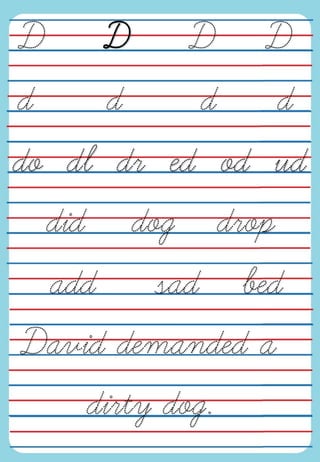 D D D D
d d d d
do dl dr ed od ud
did dog drop
add sad bed
David demanded a
dirty dog.